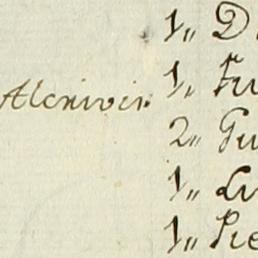 1„ D
Alcrivir. 1„ Fu
2„ Gu
1„ Lu
1„ Pie